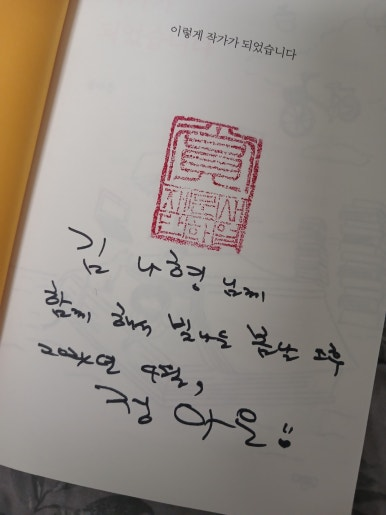 이렇게 작가가 되었습니다
김 나형 님께
함께 해서 빛나는 봄날 오후
4월,
정아을